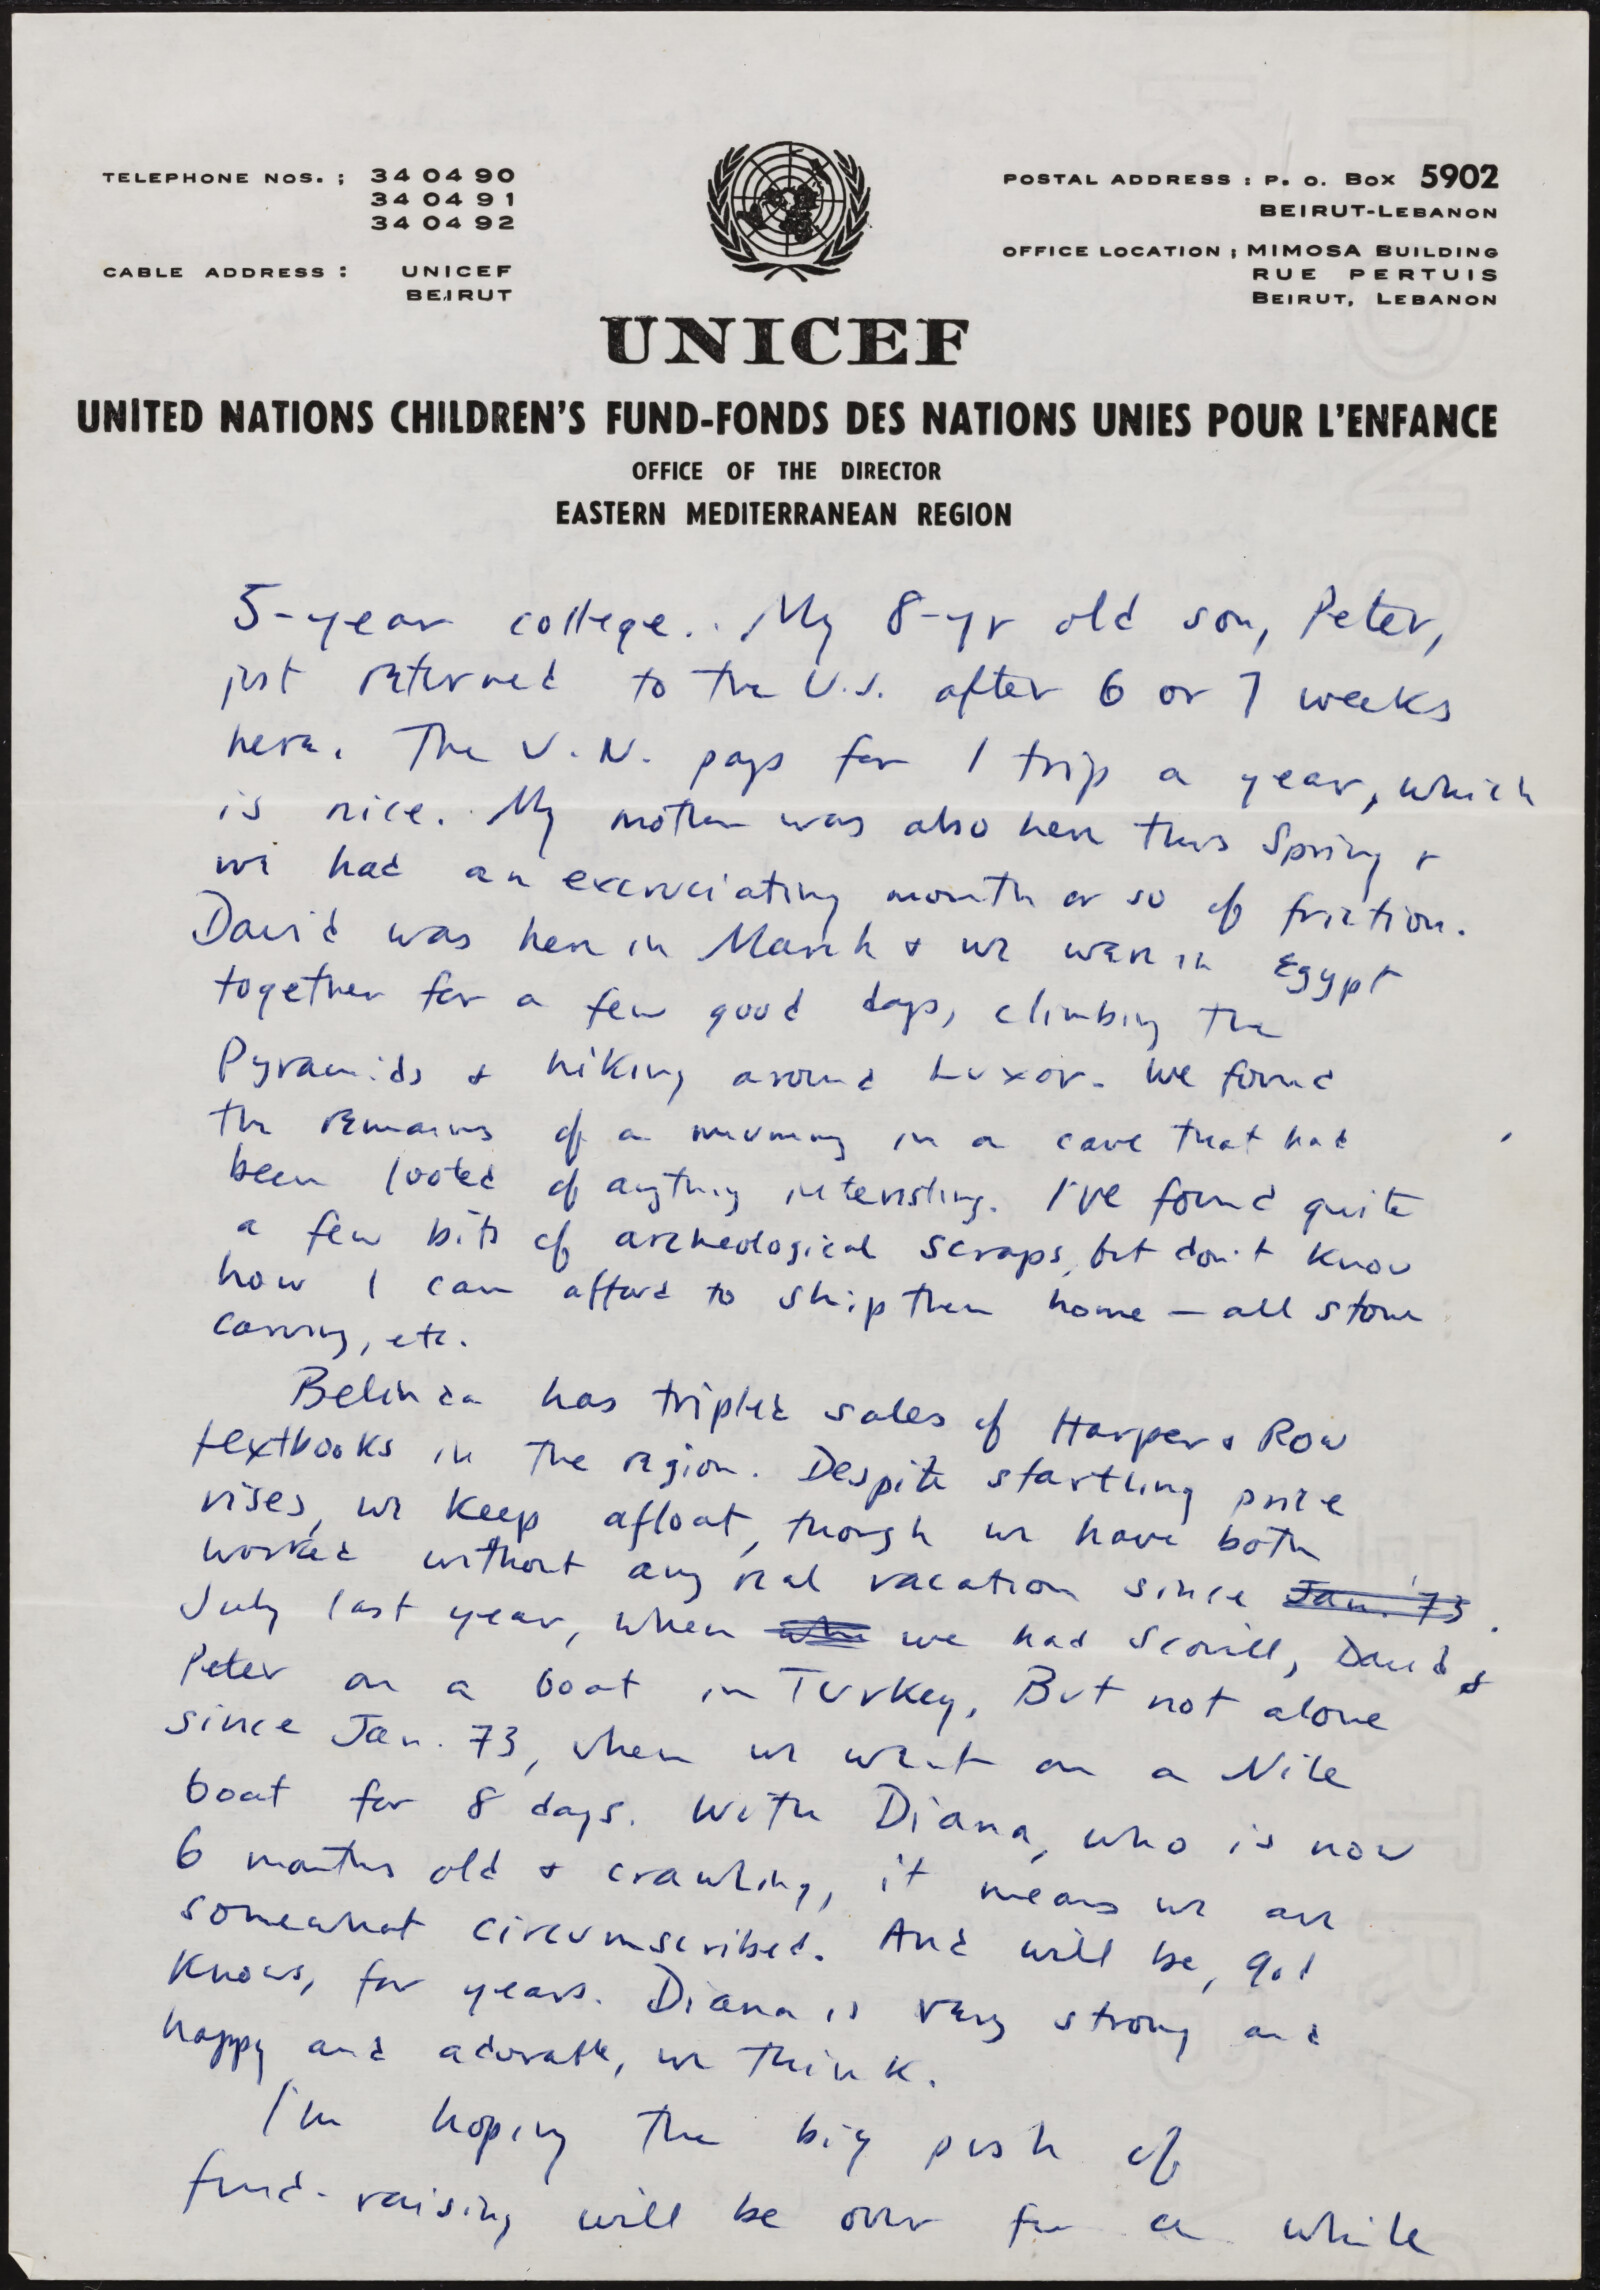 TELEPHONE NOS. ; 34 04 90
34 04 91
34 04 92
CABLE ADDRESS : UNICEF
BEIRUT
POSTAL ADDRESS : P. O. BOX 5902
BEIRUT-LEBANON
OFFICE LOCATION ; MIMOSA BUILDING
RUE PERTUIS
BEIRUT, LEBANON
UNICEF
UNITED NATIONS CHILDREN'S FUND-FONDS DES NATIONS UNIES POUR L'ENFANCE
OFFICE OF THE DIRECTOR
EASTERN MEDITERRANEAN REGION
5-year college. My 8-yr old son, Peter,
just returned to the U.S. after 6 or 7 weeks
here. The U.N. pays for 1 trip a year, which
is nice. My mother was also here this Spring &
we had an excruciating month or so of friction.
David was here in March & we were in Egypt
together for a few good days, climbing the
Pyramids & hiking around Luxor. We found
the remains of a mummy in a cave that had
been looted of anything interesting. I've found quite
a few bits of archeological scraps, but don't know
how I can afford to ship them home — all stone
carving, etc.
Belinda has tripled sales of Harper & Row
textbooks in the region. Despite startling price
rises, we keep afloat, though we have both
worked without any real vacation since Jan. '73
July last year, when we had Scovill, David &
Peter on a boat in Turkey. But not alone
since Jan. 73, when we went on a Nile
boat for 8 days. With Diana, who is now
6 months old & crawling, it means we are
somewhat circumscribed. And will be, God
knows, for years. Diana is very strong and
happy and adorable, we think.
I'm hoping the big push of
fund-raising will be over for a while